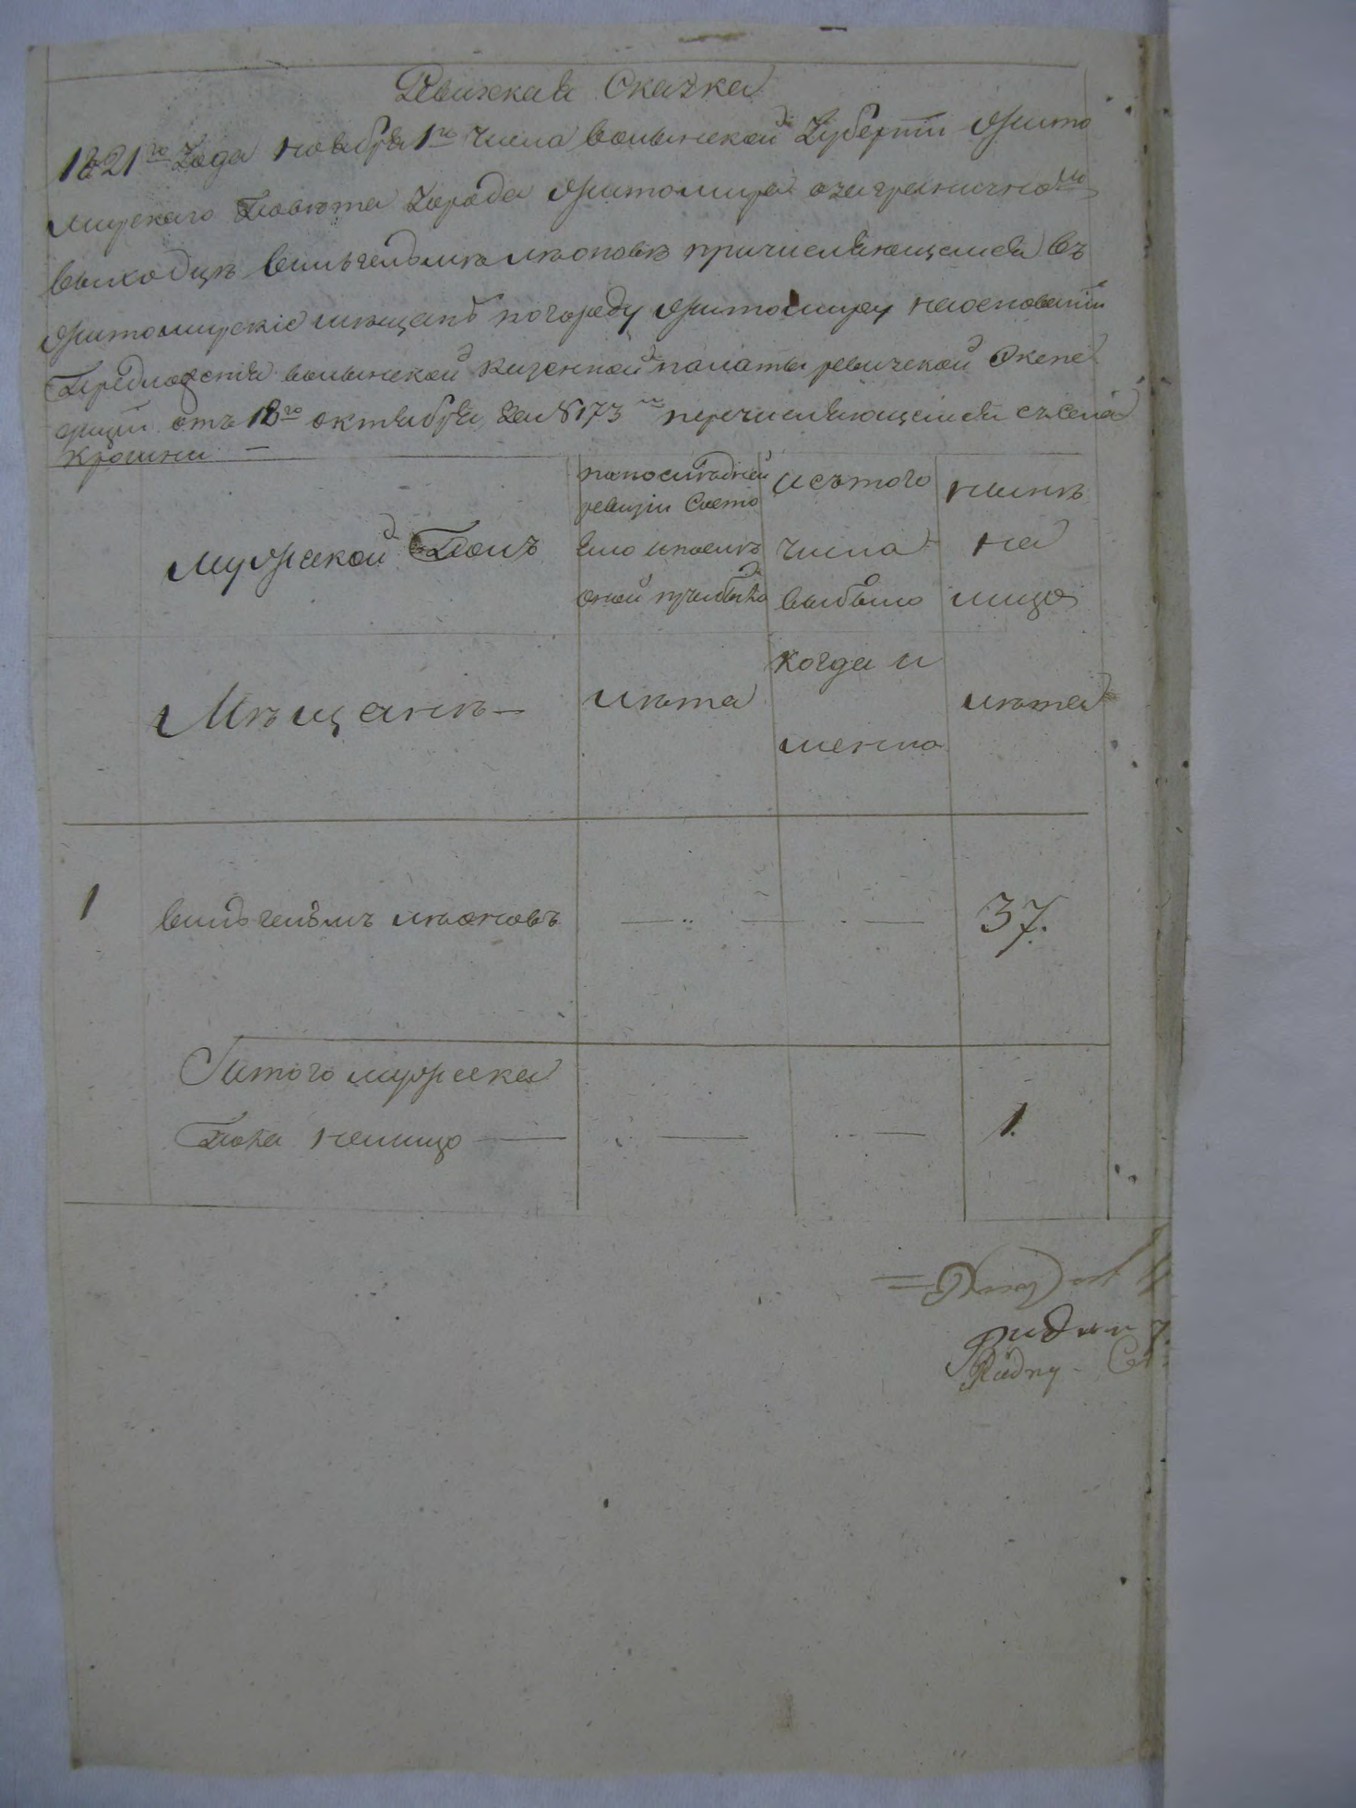 Ревизкая Сказка
1821го года ноября 1го числа волынской Губерніи Жито
мирского Повѣта города Житомира о заграничномъ
выходцѣ вильгельмѣ лѣоновѣ причисляющемся въ
Житомирскіе мѣщане по городу Житомиру на основаніи
Предложенія волынской казенной палаты ревизской Экспе
диціи отъ 18го октября за №173м перечисляющемся съ села
Крошни —
Мужеской Полъ
по последней ревизіи Состо яло и после оной прибыло
и съ того числа выбыло
ныне на лицо
Мѣщанѣ —
лѣта
когда и менно
лѣта
1 вильгельмъ лѣоновъ — — — 37.
Итого мужеска
Пола налицо — — — 1.